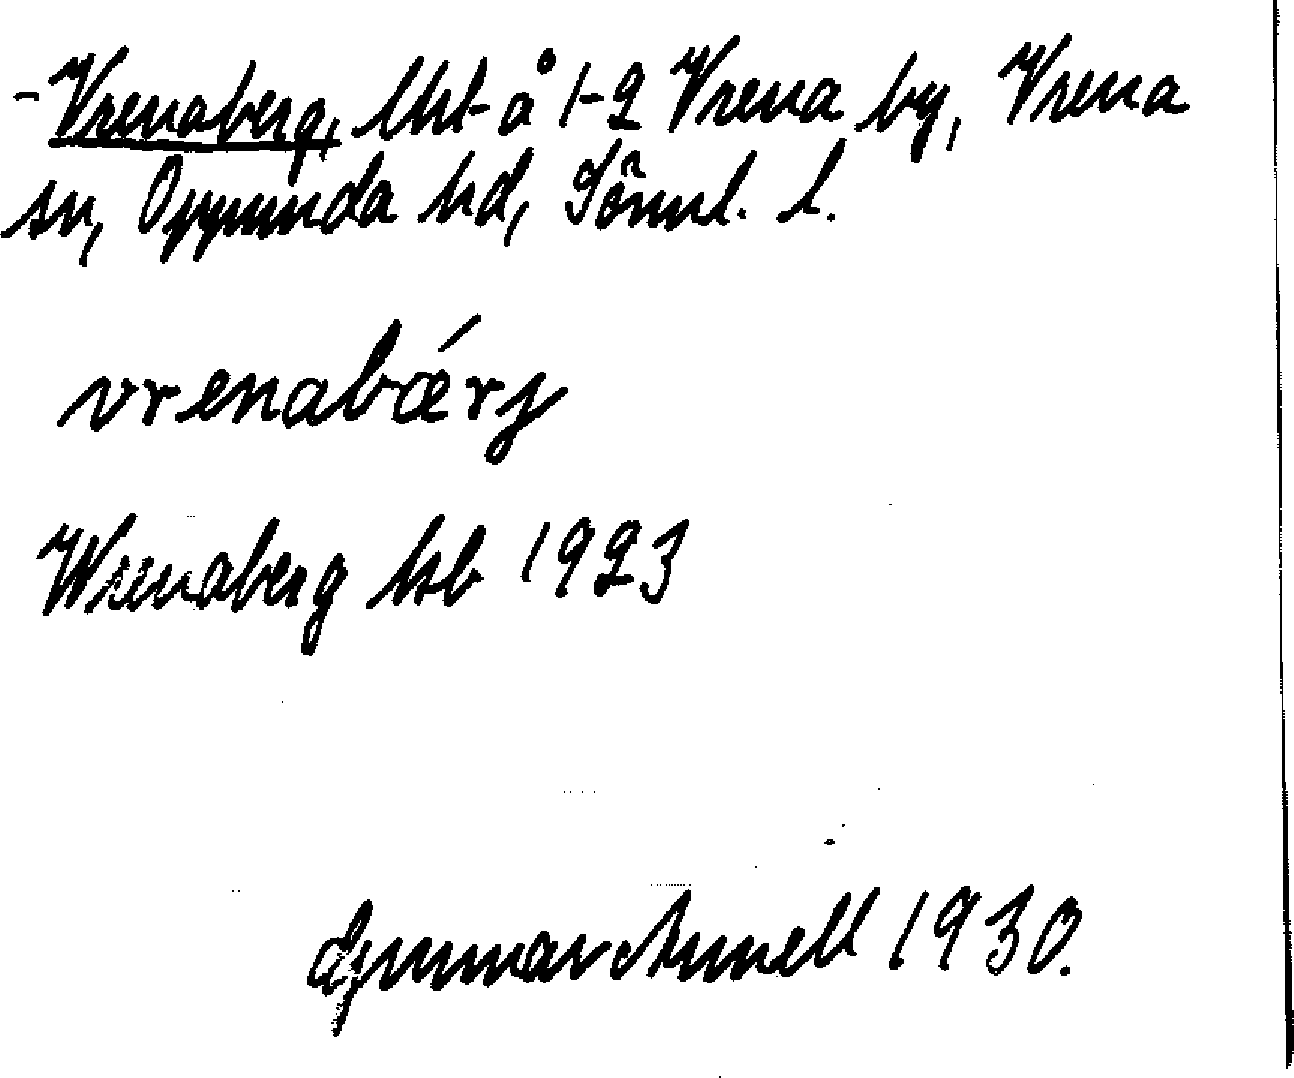 -Vrenaberg, lht å 1-2 Vrena by, Vrena
sn, Oppunda hd, Sörml. l.
vrenabǽrj
Wrenaberg hsb 1923
Gunnar Arnell 1930.